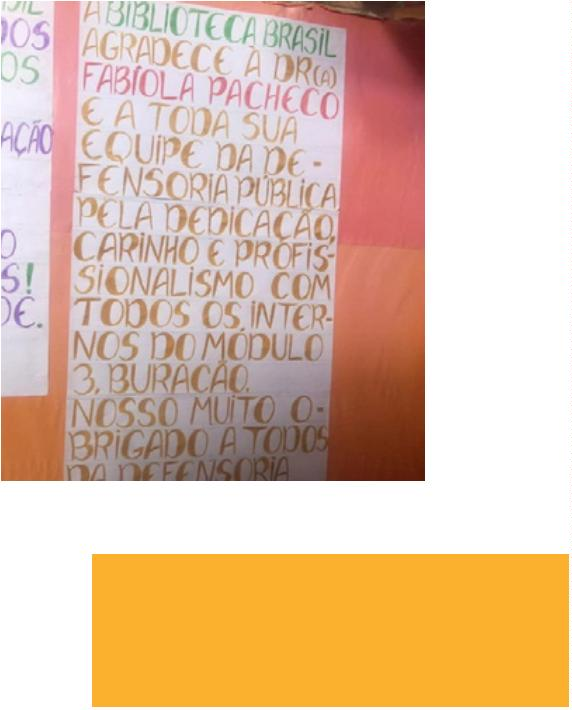 SIL
DOS
OS
AÇÃO
O
S!
DE.
A BIBLIOTECA BRASIL
AGRADECE À DR(A)
FABÍOLA PACHECO
E A TODA SUA
EQUIPE DA DE-
FENSORIA PÚBLICA
PELA DEDICAÇÃO,
CARINHO E PROFIS-
SIONALISMO COM
TODOS OS INTER-
NOS DO MÓDULO
3, BURACÃO.
NOSSO MUITO O-
BRIGADO A TODOS
DA DEFENSORIA